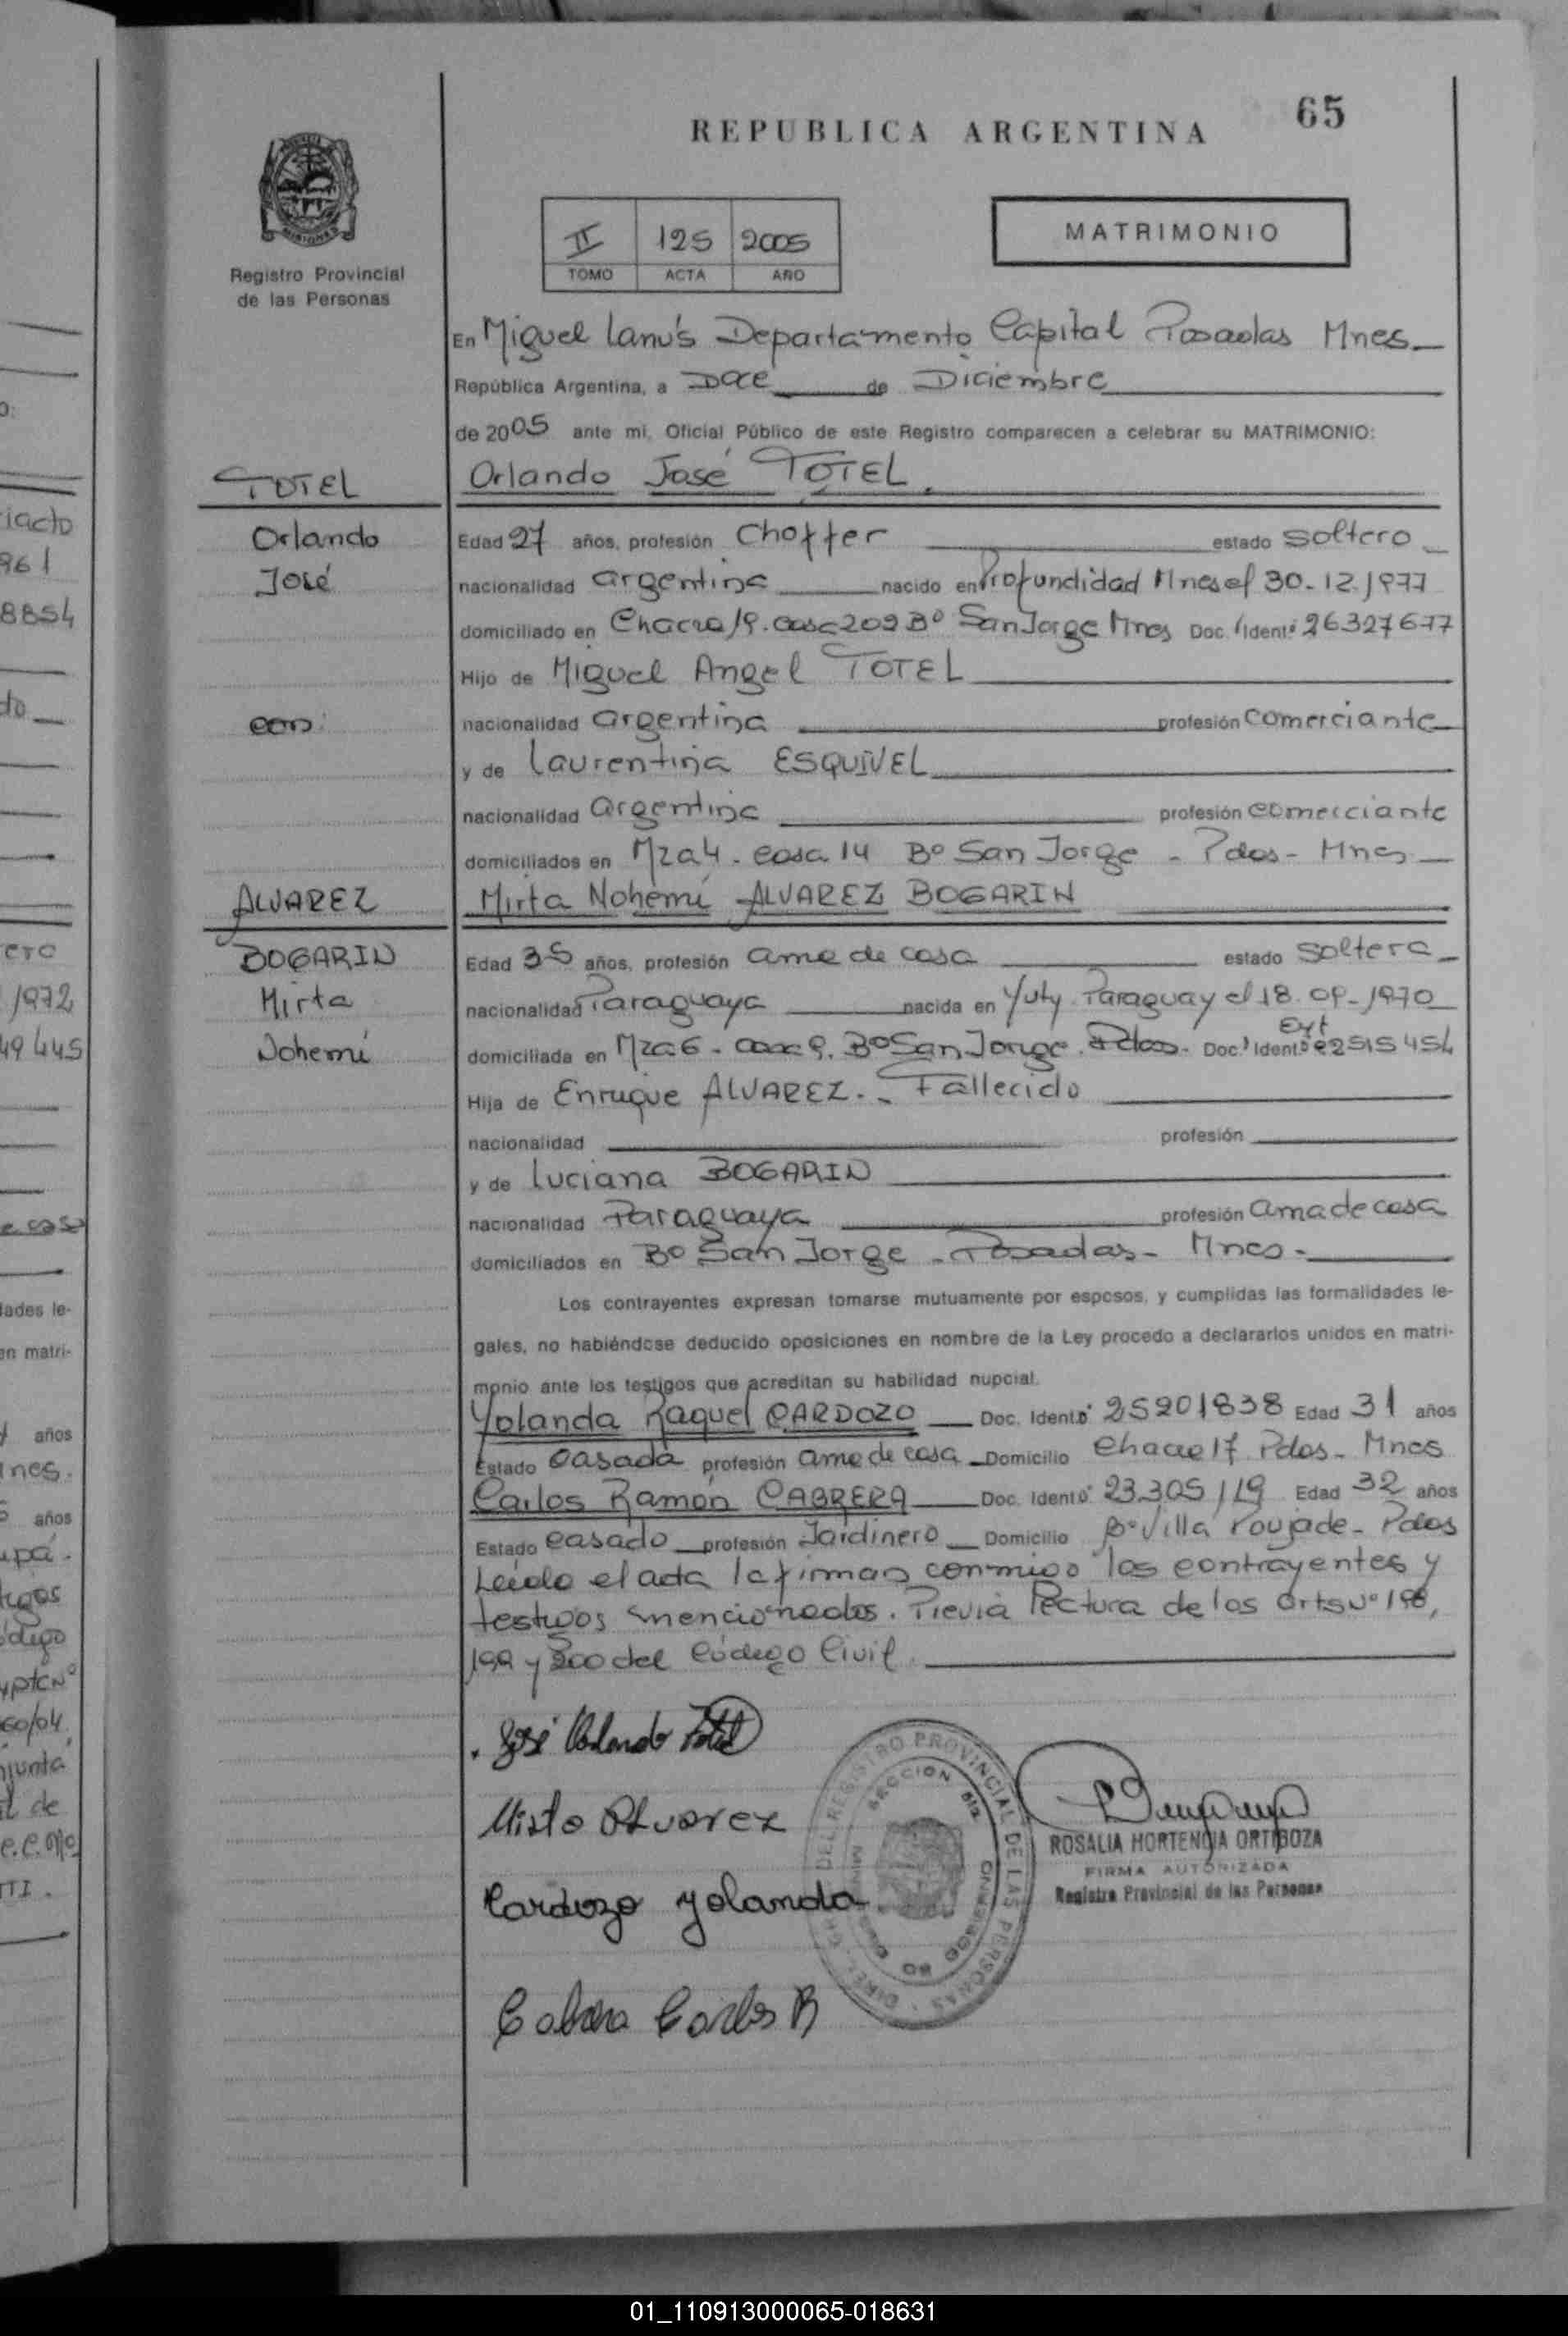 65
REPUBLICA ARGENTINA
II 125 2005
TOMO ACTA AÑO
MATRIMONIO
Registro Provincial
de las Personas
En Miguel Lanús Departamento Capital Posadas Mnes
República Argentina, a Doce de Diciembre
de 2005 ante mi, Oficial Público de este Registro comparecen a celebrar su MATRIMONIO:
TOTEL
Orlando José TOTEL
Orlando
José
Edad 27 años, profesión Choffer estado soltero
nacionalidad argentina nacido en Profundidad Mnes el 30-12-1977
domiciliado en Chacra 19. casa 209 Bº San Jorge Mnes Doc. Ident. 26327677
Hijo de Miguel Angel TOTEL
con:
nacionalidad argentina profesión comerciante
y de Laurentina ESQUIVEL
nacionalidad argentina profesión comerciante
domiciliados en Mza 4 - casa 14 Bº San Jorge - Pdas - Mnes
ALVAREZ
Mirta Nohemí ALVAREZ BOGARIN
BOGARIN
Mirta
Nohemí
Edad 35 años, profesión ama de casa estado soltera
nacionalidad Paraguaya nacida en Yuty Paraguay el 18-09-1970
domiciliada en Mza 6 - casa 9. Bº San Jorge. Pdas. Doc. Ident. Ext
Hija de Enrique ALVAREZ.- Fallecido
nacionalidad profesión
y de Luciana BOGARIN
nacionalidad Paraguaya profesión ama de casa
domiciliados en Bº San Jorge - Posadas - Mnes -
Los contrayentes expresan tomarse mutuamente por esposos, y cumplidas las formalidades le-
gales, no habiéndose deducido oposiciones en nombre de la Ley procedo a declararlos unidos en matri-
monio ante los testigos que acreditan su habilidad nupcial.
Yolanda Raquel CARDOZO Doc. Ident. 25201838 Edad 31 años
Estado casada profesión ama de casa Domicilio Chacra 17 Pdas - Mnes
Carlos Ramón CABRERA Doc. Ident. 23.305.119 Edad 32 años
Estado casado profesión Jardinero Domicilio Bº Villa Poujade - Pdas
Leído el acta la firman conmigo los contrayentes y
testigos mencionados. Previa lectura de los arts Nº 198,
199 y 200 del Código Civil.
José Orlando Totel
Mirta Alvarez
Cardozo Yolanda
Cabrera Carlos R
DIREC. GRAL. DEL REGISTRO PROVINCIAL DE LAS PERSONAS
ROSALIA HORTENCIA ORTIGOZA
FIRMA AUTORIZADA
Registro Provincial de las Personas
01_110913000065-018631